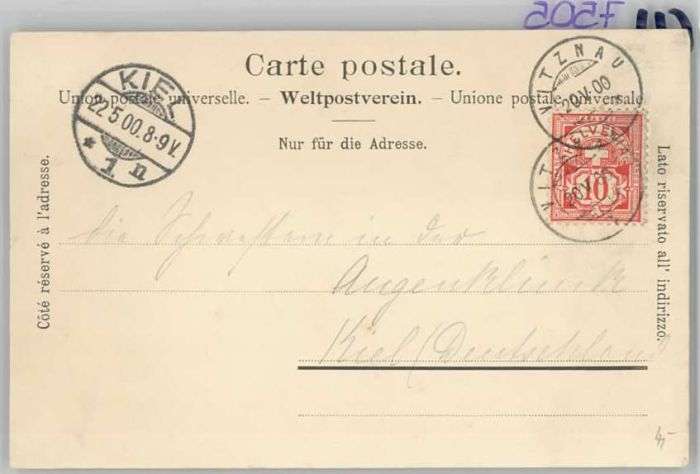 5025
Carte postale.
Union postale universelle. — Weltpostverein. — Unione postale universale
Nur für die Adresse.
KIEL
22.5.00.8-9V.
* 1 n
VITZNAU
20.V.00
HELVETIA
10
VIT
20.V.00
Côté réservé à l'adresse.
Lato riservato all' indirizzo.
die Schwestern in der
Augenklinik
Kiel (Deutschland